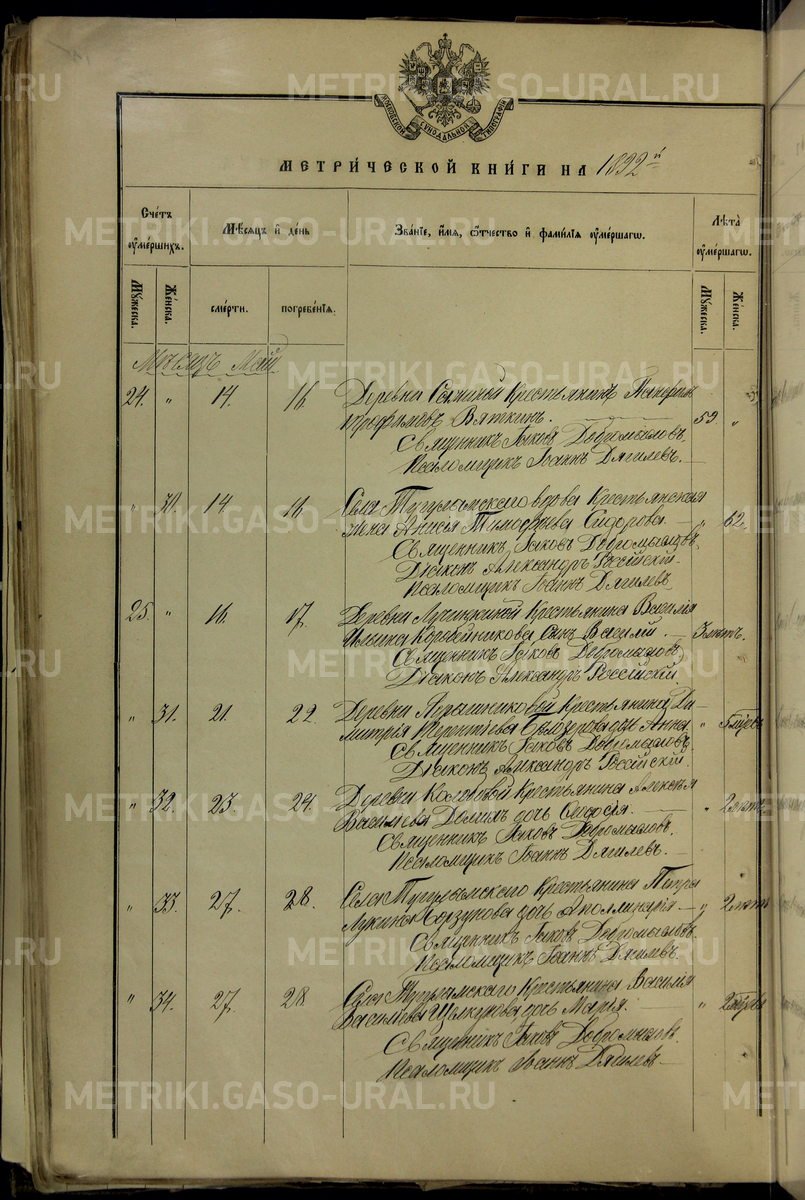 МОСКОВСКОЙ СѴНОДАЛЬНОЙ ТИПОГРАФІИ
МЕТРИ́ЧЕСКОЙ КНИ́ГИ НА 1892й
Сче́тъ ᲂу҆ме́ршихъ.
Мѣ́сяцъ и҆ де́нь
Зва́нїе, и҆́мя, ѻ҆́тчество и҆ фами́лїя ᲂу҆ме́ршагѡ.
Лѣ́та ᲂу҆ме́ршагѡ.
Мꙋ́жеска.
Же́нска.
сме́рти.
погребе́нїя.
Мꙋ́жеска.
Же́нска.
Мѣсяцъ Май
24. " 14. 16. Деревни Крестьянинъ
Трофимовъ Вяткинъ. 59 "
Священникъ Іаковъ Добромысловъ.
Псаломщикъ Іоаннъ Дягилевъ.
" 30. 14 16 Села Тугулымскаго вдова Крестьянская
жена Анисія Тимофѣева Сидорова " 62.
Священникъ Іаковъ Добромысловъ.
Діаконъ Александръ Россійскій.
Псаломщикъ Іоаннъ Дягилевъ
25. " 16. 17. Деревни Крестьянина Василія
Ильина Коробейникова сынъ Василій. 3 лѣтъ.
Священникъ Іаковъ Добромысловъ
Діаконъ Александръ Россійскій.
" 31. 21. 22. Деревни Крестьянина Ди-
митрія Терентьева дочь Анна " 5 мѣсев
Священникъ Іаковъ Добромысловъ.
Діаконъ Александръ Россійскій.
" 32. 23. 24. Деревни Крестьянина Алексѣя
Васильева дочь " 2 лѣтъ
Священникъ Іаковъ Добромысловъ.
Псаломщикъ Іоаннъ Дягилевъ.
" 33. 27. 28. Села Тугулымскаго Крестьянина Петра
Лукина дочь Аполлинарія " 2 лѣтъ
Священникъ Іаковъ Добромысловъ.
Псаломщикъ Іоаннъ Дягилевъ.
" 34. 27. 28 Села Тугулымскаго Крестьянина Василія
Васильева дочь Марія. "
Священникъ Іаковъ Добромысловъ.
Псаломщикъ Іоаннъ Дягилевъ.
METRIKI.GASO-URAL.RU